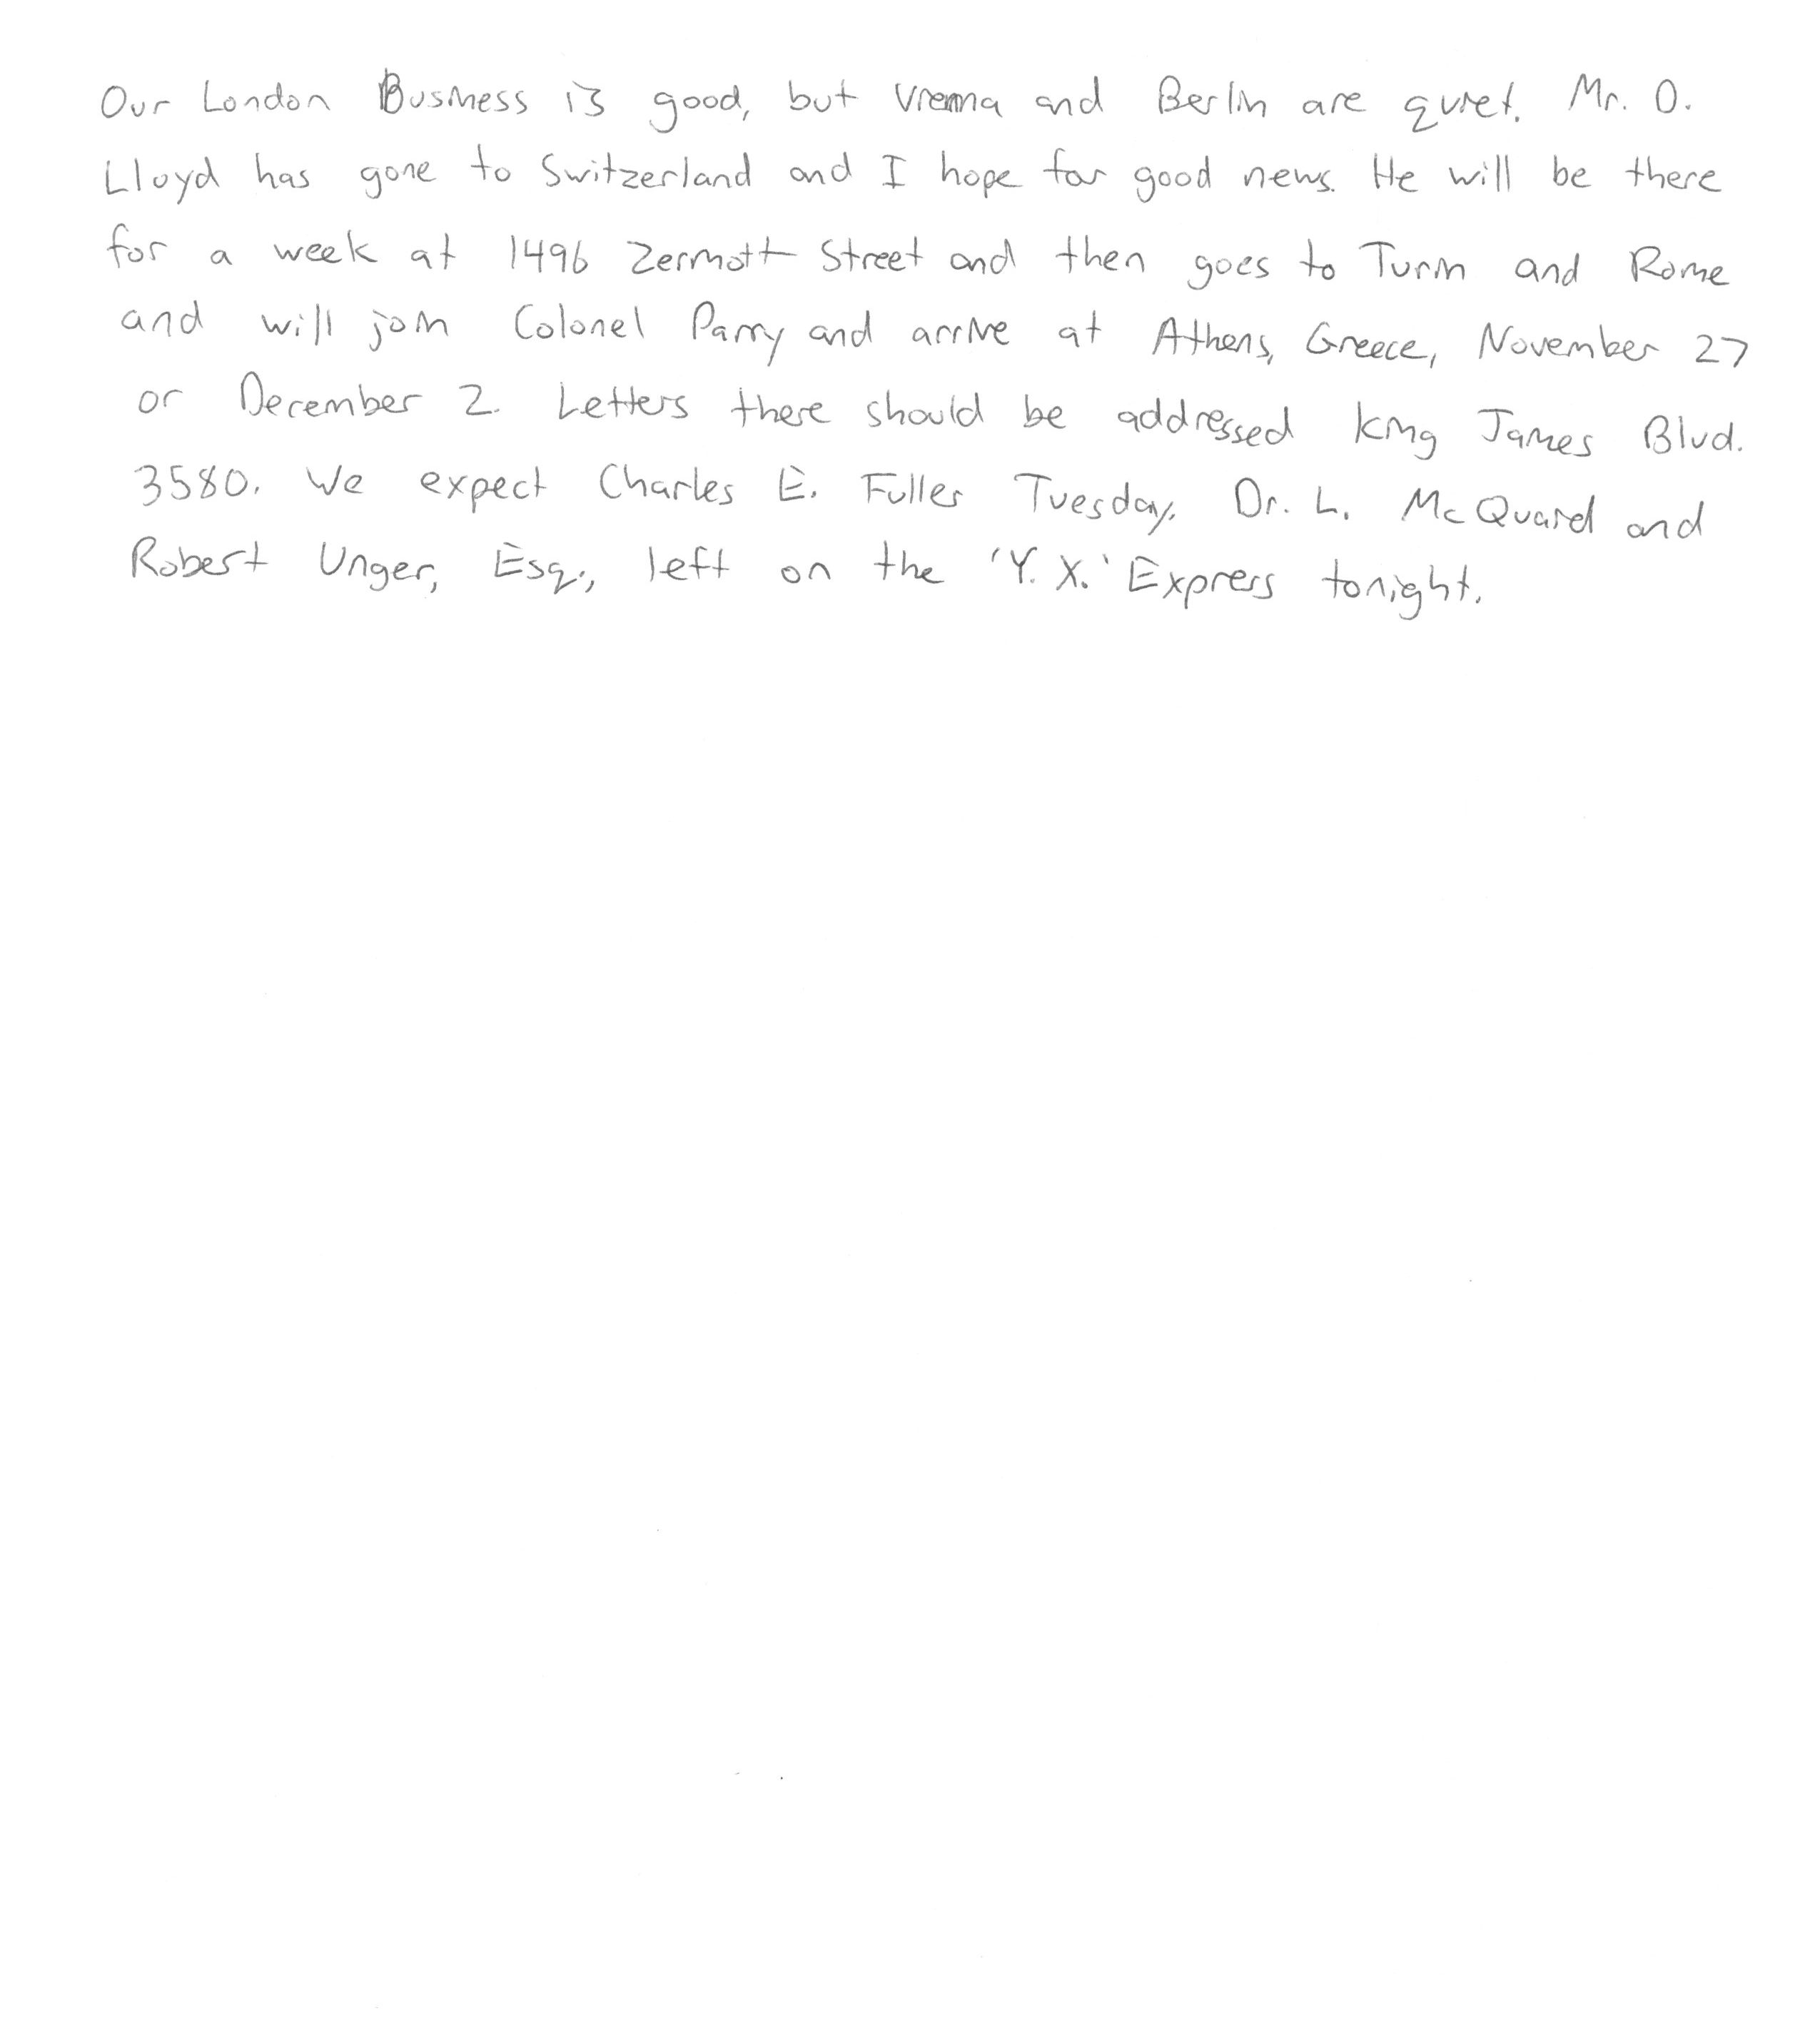 Our London Business is good, but Vienna and Berlin are quiet. Mr. O.
Lloyd has gone to Switzerland and I hope for good news. He will be there
for a week at 1496 Zermott Street and then goes to Turin and Rome
and will join Colonel Parry and arrive at Athens, Greece, November 27
or December 2. Letters there should be addressed King James Blvd.
3580. We expect Charles E. Fuller Tuesday. Dr. L. McQuaid and
Robert Unger, Esq., left on the 'Y. X.' Express tonight.